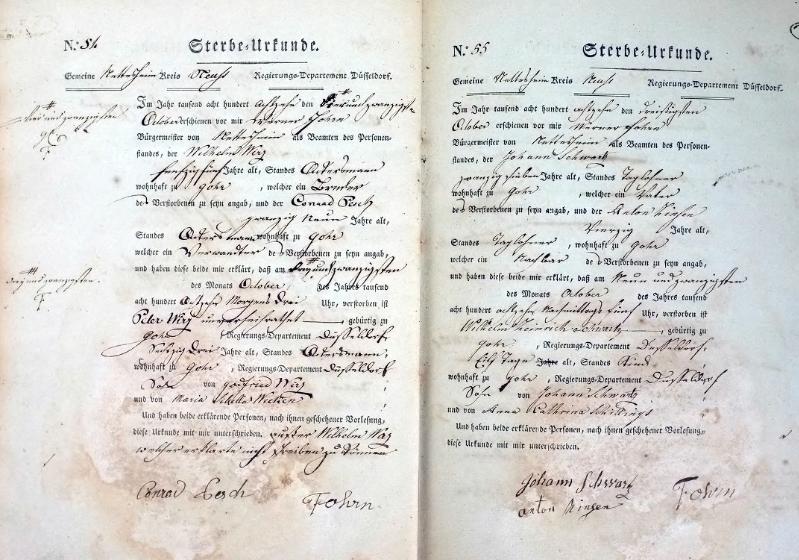 N.° 54. Sterbe-Urkunde.
Gemeine Nettesheim Kreis Neuß Regierungs-Departement Düsseldorf.
Im Jahr tausend acht hundert achtzehn den
October erschienen vor mir Werner Fohrn
Bürgermeister von Nettesheim als Beamten des Personen-
standes, der Wilhelm Wirz
fünfzig fünf Jahre alt, Standes Ackersmann
wohnhaft zu Gohr, welcher ein Bruder
des Verstorbenen zu seyn angab, und der Conrad Pesch
zwanzig Neun Jahre alt,
Standes Ackersmann wohnhaft zu Gohr
welcher ein Verwandter des Verstorbenen zu seyn angab,
und haben diese beide mir erklärt, daß am
des Monats October des Jahres tausend
acht hundert Achtzehn Morgens Drei Uhr, verstorben ist
Peter Wirz unverheirathet gebürtig zu
Gohr, Regierungs-Departement Düsseldorf,
Sechzig Drei Jahre alt, Standes Ackersmann,
wohnhaft zu Gohr, Regierungs-Departement Düsseldorf
Sohn von Gotfried Wirz
und von Maria
Und haben beide erklärende Personen, nach ihnen geschehener Vorlesung,
diese Urkunde mit mir unterschrieben. außer Wilhelm Wirz
welcher erklarte nicht schreiben zu können
Conrad Pesch Fohrn
drei und zwanzigsten
N.° 55 Sterbe-Urkunde.
Gemeine Nettesheim Kreis Neuß Regierungs-Departement Düsseldorf.
Im Jahr tausend acht hundert achtzehn den Dreißigsten
October erschienen vor mir Werner Fohrn
Bürgermeister von Nettesheim als Beamten des Personen-
standes, der Johann Schwartz
zwanzig sieben Jahre alt, Standes Taglöhner
wohnhaft zu Gohr, welcher ein Vater
des Verstorbenen zu seyn angab, und der Anton
Vierzig Jahre alt,
Standes Taglöhner, wohnhaft zu Gohr
welcher ein Nachbar des Verstorbenen zu seyn angab,
und haben diese beide mir erklärt, daß am Neun und zwanzigsten
des Monats October des Jahres tausend
acht hundert achtzehn Nachmittags fünf Uhr, verstorben ist
Wilhelm Heinrich Schwartz gebürtig zu
Gohr, Regierungs-Departement Düsseldorf,
Tage Jahre alt, Standes Kind
wohnhaft zu Gohr, Regierungs-Departement Düsseldorf
Sohn von Johann Schwartz
und von Anna Cathrina
Und haben beide erklärende Personen, nach ihnen geschehener Vorlesung,
diese Urkunde mit mir unterschrieben.
Johann Schwarz Fohrn
Anton